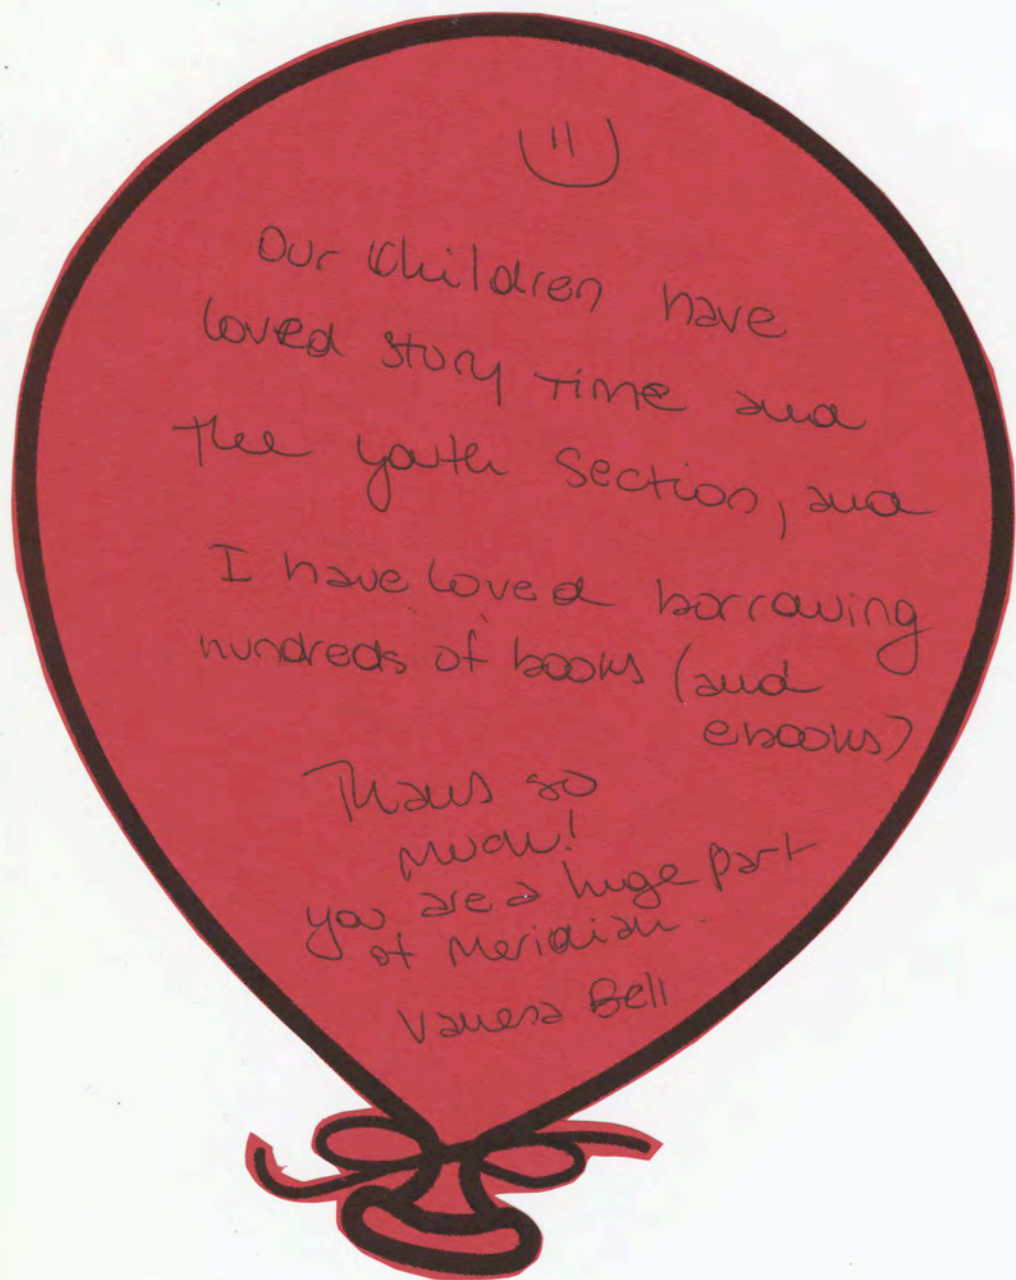 Our Children have
loved story time and
the youth section, and
I have loved borrowing
hundreds of books (and
ebooks)
Thanks so
much!
you are a huge part
of Meridian.
Vanesa Bell